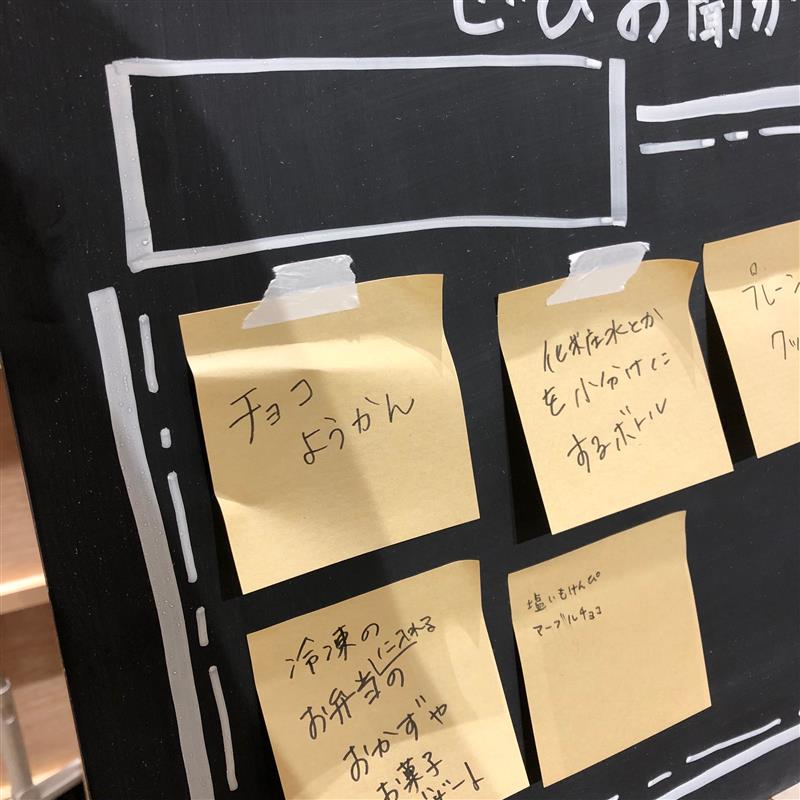 ぜひお聞か
チョコ
ようかん
化粧水とか
を小分けに
するボトル
プレーン
クッ
冷凍の
お弁当に入れるの
おかずや
お菓子
塩いもけんぴ
マーブルチョコ